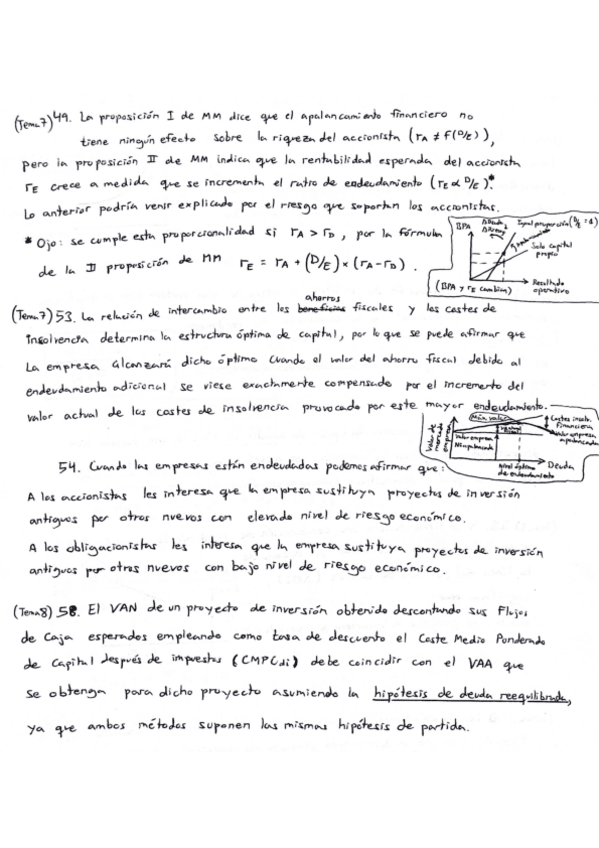 (Tema7) 49. La proposición I de MM dice que el apalancamiento financiero no
tiene ningún efecto sobre la riqeza del accionista (rA ≠ f(D/E)),
pero la proposición II de MM indica que la rentabilidad esperada del accionista
rE crece a medida que se incrementa el ratio de endeudamiento (rE ∝ D/E).*
Lo anterior podría venir explicado por el riesgo que soportan los accionistas.
* Ojo: se cumple esta proporcionalidad si rA > rD, por la fórmula
de la II proposición de MM rE = rA + (D/E) × (rA - rD).
BPA
ΔDeuda
Igual proporción (D/E = 1)
Solo capital
propio
Resultado
operativo
(BPA y rE cambian)
ahorros
(Tema7) 53. La relación de intercambio entre los beneficios fiscales y los costes de
insolvencia determina la estructura óptima de capital, por lo que se puede afirmar que
La empresa alcanzará dicho óptimo cuando el valor del ahorro fiscal debido al
endeudamiento adicional se viese exactamente compensado por el incremento del
valor actual de los costes de insolvencia provocado por este mayor endeudamiento.
Máx. valor
Costes insolv.
Financiera
Valor empresa
apalancada
Valor de
mercado
empresa
Valor empresa
No apalancada
Nivel óptimo
de endeudamiento
Deuda
54. Cuando las empresas están endeudadas podemos afirmar que:
A los accionistas les interesa que la empresa sustituya proyectos de inversión
antiguos por otros nuevos con elevado nivel de riesgo económico.
A los obligacionistas les interesa que la empresa sustituya proyectos de inversión
antiguos por otros nuevos con bajo nivel de riesgo económico.
(Tema8) 58. El VAN de un proyecto de inversión obtenido descontando sus Flujos
de Caja esperados empleando como tasa de descuento el Coste Medio Ponderado
de Capital después de impuestos (CMPCdi) debe coincidir con el VAA que
se obtenga para dicho proyecto asumiendo la hipótesis de deuda reequilibrada,
ya que ambos métodos suponen las mismas hipótesis de partida.